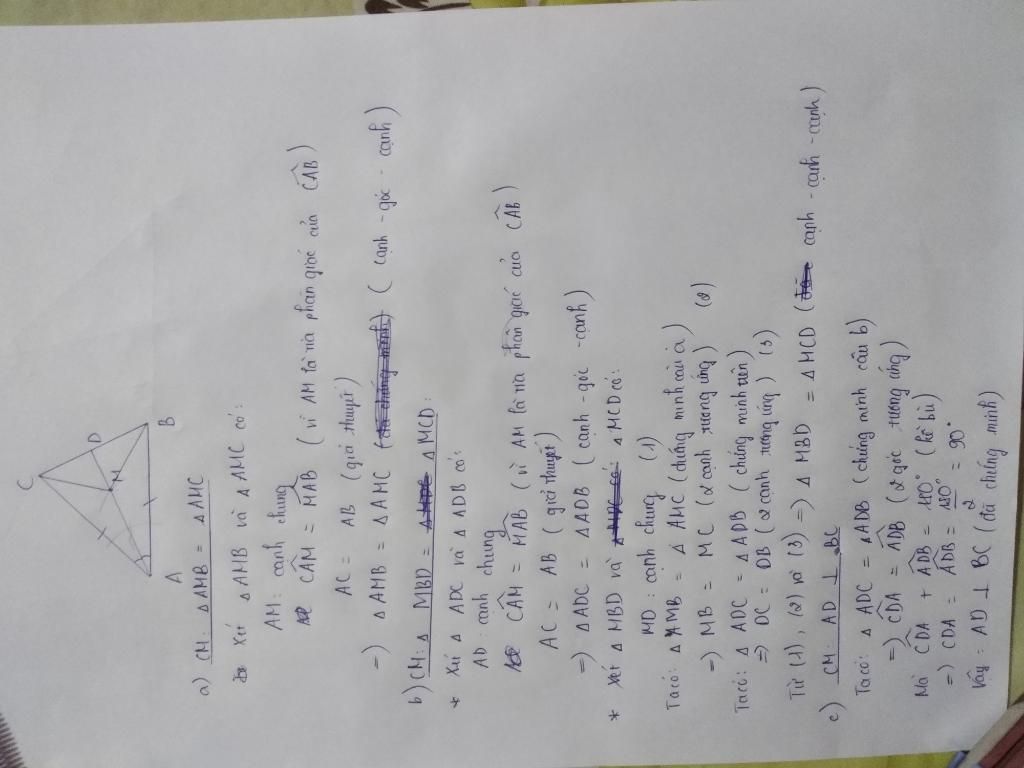 C
D
M
A
B
a) CM: Δ AMB = Δ AMC
Xét Δ AMB và Δ AMC có:
AM: cạnh chung
CAM = MAB (vì AM là tia phân giác của CAB)
AC = AB (giả thuyết)
=) Δ AMB = Δ AMC (cạnh - góc - cạnh)
b) CM: Δ MBD = Δ MCD:
* Xét Δ ADC và Δ ADB có:
AD: cạnh chung
CAM = MAB (vì AM là tia phân giác của CAB)
AC = AB (giả thuyết)
=) Δ ADC = Δ ADB (cạnh - góc - cạnh)
* Xét Δ MBD và Δ MCD có:
MD: cạnh chung (1)
Ta có: Δ AMB = Δ AMC (chứng minh câu a)
=) MB = MC (2 cạnh tương ứng) (2)
Ta có: Δ ADC = Δ ADB (chứng minh trên)
=) DC = DB (2 cạnh tương ứng) (3)
Từ (1), (2) và (3) =) Δ MBD = Δ MCD (cạnh - cạnh - cạnh)
c) CM: AD ⊥ BC
Ta có: Δ ADC = Δ ADB (chứng minh câu b)
=) CDA = ADB (2 góc tương ứng)
Mà CDA + ADB = 180° (kề bù)
=) CDA = ADB = 180°/2 = 90°
Vậy: AD ⊥ BC (đã chứng minh)